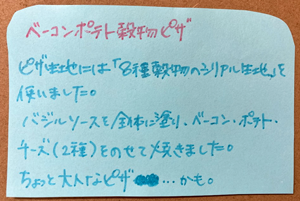 ベーコンポテト穀物ピザ
ピザ生地には「8種穀物のシリアル生地」を
使いました。
バジルソースを全体に塗り、ベーコン・ポテト・
チーズ(2種)をのせて焼きました。
ちょっと大人なピザ…かも。